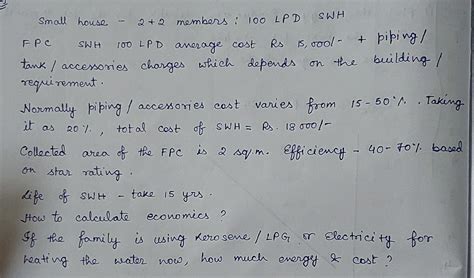 Small house - 2+2 members : 100 LPD SWH
FPC SWH 100 LPD average cost Rs 15,000/- + piping /
tank / accessories charges which depends on the building /
requirement .
Normally piping / accessories cost varies from 15-50% . Taking
it as 20% , total cost of SWH = Rs. 18000/-
Collected area of the FPC is 2 sq.m. Efficiency - 40-70% based
on star rating .
Life of SWH - take 15 yrs .
How to calculate economics ?
If the family is using kerosene / LPG or Electricity for
heating the water now, how much energy & cost ?